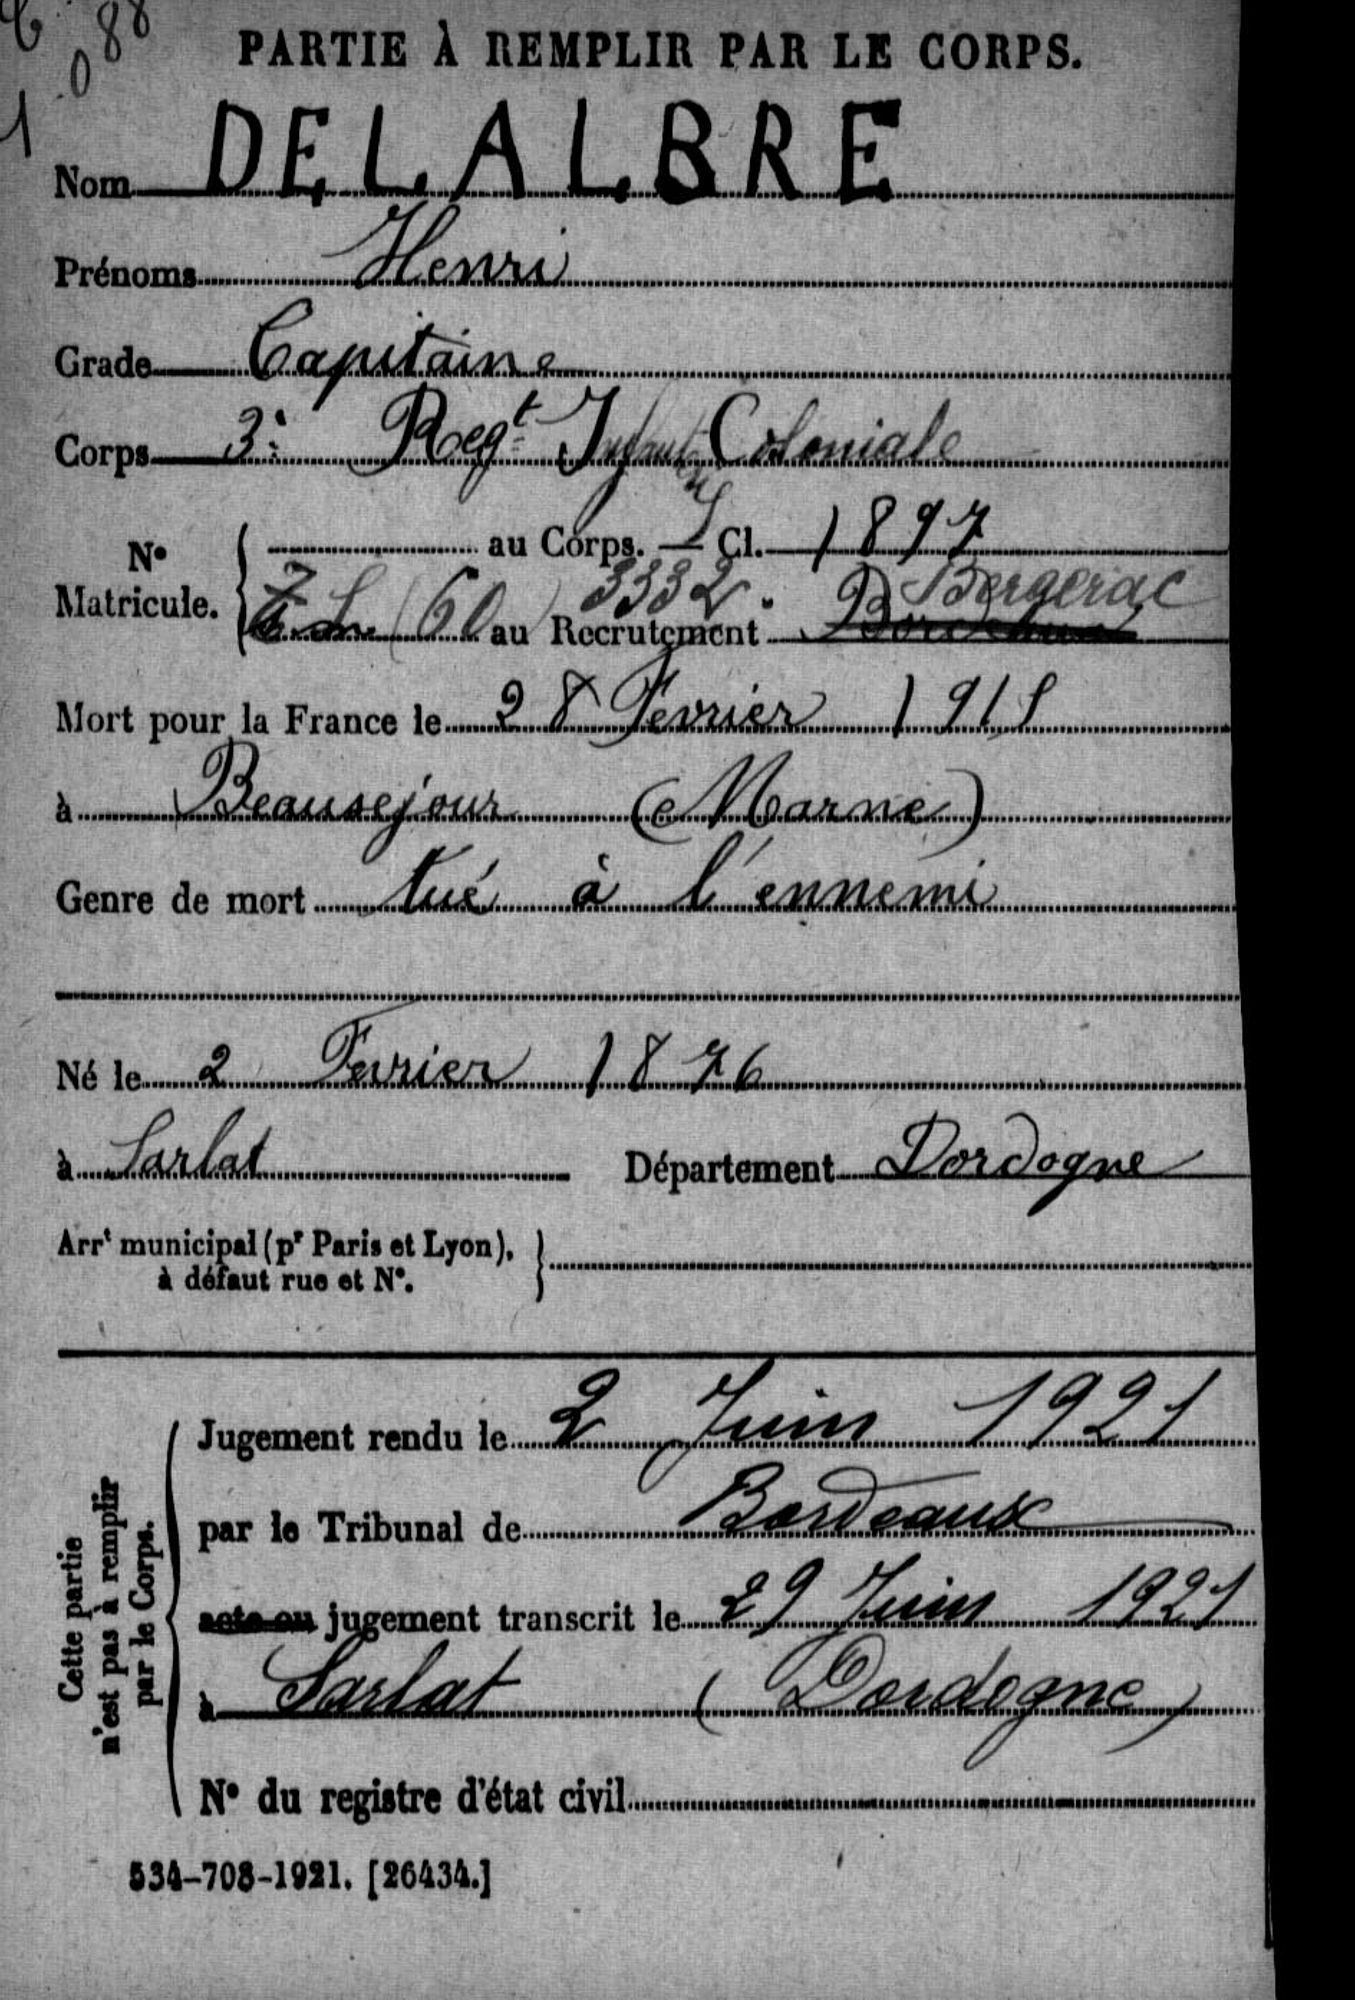 088
1
PARTIE À REMPLIR PAR LE CORPS.
Nom DELALBRE
Prénoms Henri
Grade Capitaine
Corps 3e Regt Infant Coloniale
N° Matricule.
au Corps. Cl. 1897
3332 Bergerac
(60) au Recrutement Bordeaux
Mort pour la France le 28 Fevrier 1915
à Beausejour (Marne)
Genre de mort tué à l'ennemi
Né le 2 Fevrier 1876
à Sarlat Département Dordogne
Arrt municipal (pr Paris et Lyon),
à défaut rue et N°.
Cette partie
n'est pas à remplir
par le Corps.
Jugement rendu le 2 Juin 1921
par le Tribunal de Bordeaux
acte ou jugement transcrit le 29 Juin 1921
à Sarlat (Dordogne)
N° du registre d'état civil
534-708-1921. [26434.]